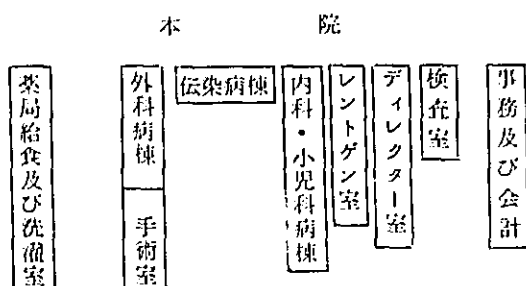 本院
薬局給食及び洗濯室
外科病棟
手術室
伝染病棟
内科・小児科病棟
レントゲン室
ディレクター室
検査室
事務及び会計